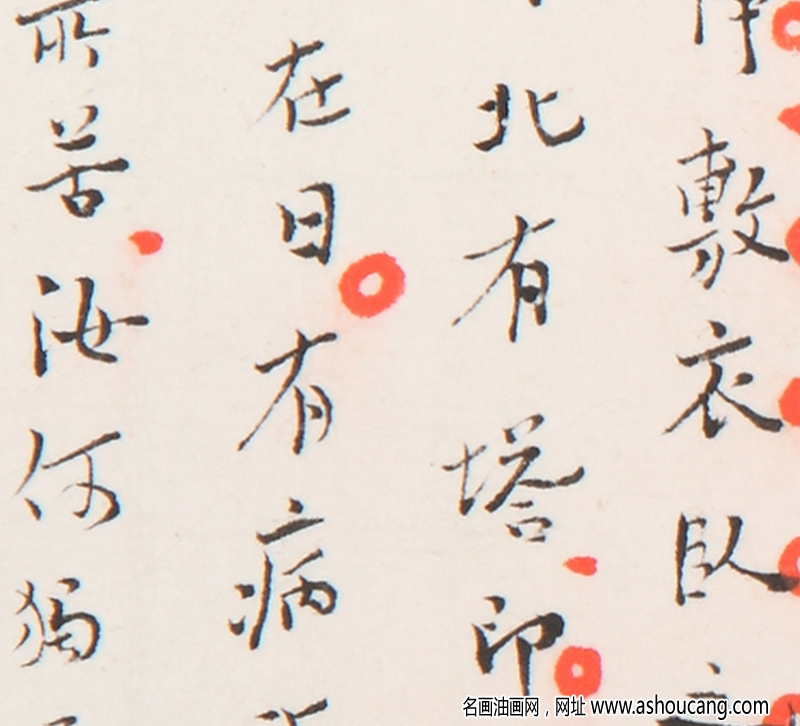 敷衣臥
北有塔印
在日有病
所苦汝何獨
名画油画网，网址 www.ashoucang.com